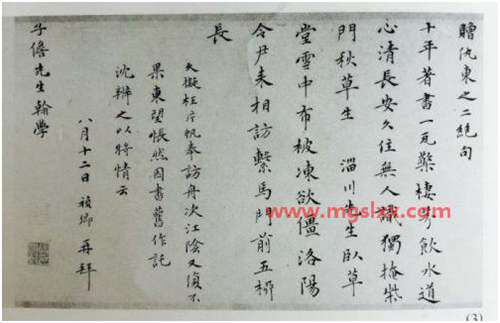 贈仇東之二絕句
十年著書一瓦甑棲芳飲水道
心清長安久住無人識獨掩柴
門秋草生 淄川先生臥草
堂雪中布被凍欲僵洛陽
令尹來相訪繫馬門前五柳
長
久擬枉片帆奉訪舟次江陰又復不
果東望悵然因書舊作託
沈辨之以將情云
八月十二日 禎卿 再拜
子儋先生翰學
www.mgslxt.com
(3)